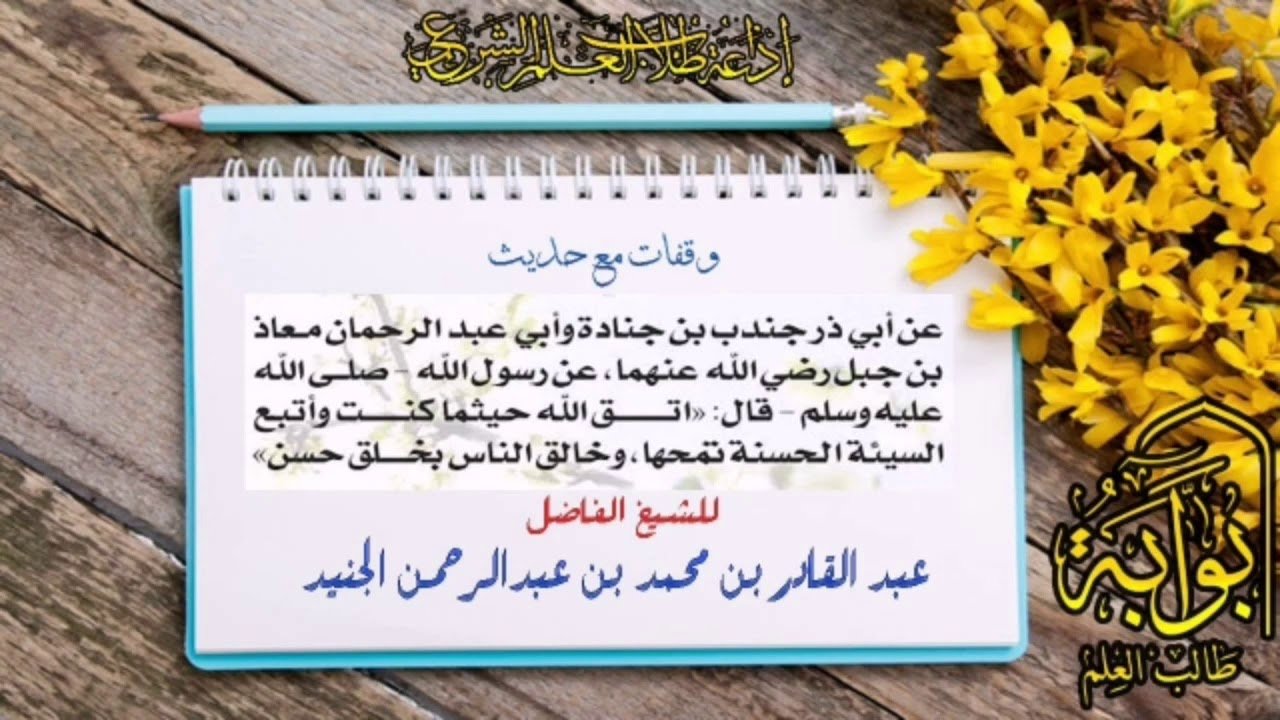 إذاعة طلاب العلم الشرعي
وقفات مع حديث
عن أبي ذر جندب بن جنادة وأبي عبد الرحمان معاذ
بن جبل رضي الله عنهما، عن رسول الله – صلى الله
عليه وسلم – قال: «اتــق الله حيثما كنــت وأتبع
السيئة الحسنة تمحها، وخالق الناس بخلق حسن»
للشيخ الفاضل
عبد القادر بن محمد بن عبدالرحمن الجنيد
بَوَّابَةُ
طَالب العِلم